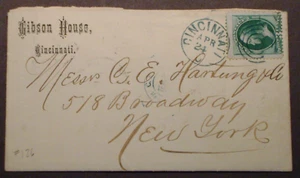 Gibson House,
Cincinnati.
CINCINNATI
APR
24
Messrs G. E. Hartung & Co
518 Broadway
New York